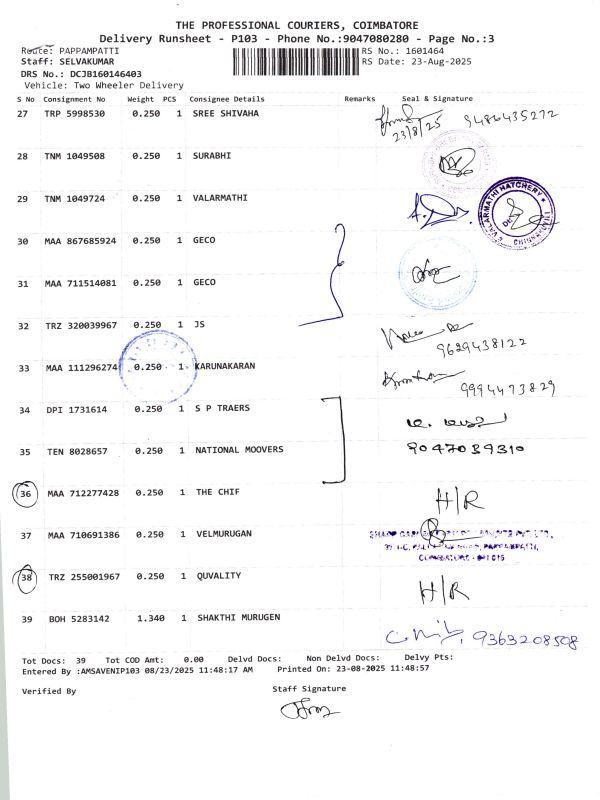 THE PROFESSIONAL COURIERS, COIMBATORE
Delivery Runsheet - P103 - Phone No.:9047080280 - Page No.:3
Route: PAPPAMPATTI RS No.: 1601464
Staff: SELVAKUMAR RS Date: 23-Aug-2025
DRS No.: DCJB160146403
Vehicle: Two Wheeler Delivery
S No Consignment No Weight PCS Consignee Details Remarks Seal & Signature
27 TRP 5998530 0.250 1 SREE SHIVAHA 23/8/25 9486435272
28 TNM 1049508 0.250 1 SURABHI
29 TNM 1049724 0.250 1 VALARMATHI VALARMATHI HATCHERY
30 MAA 867685924 0.250 1 GECO
31 MAA 711514081 0.250 1 GECO
32 TRZ 320039967 0.250 1 JS 9629438122
33 MAA 111296274 0.250 1 KARUNAKARAN 9994473829
34 DPI 1731614 0.250 1 S P TRAERS
35 TEN 8028657 0.250 1 NATIONAL MOOVERS 9047039310
36 MAA 712277428 0.250 1 THE CHIF H/R
37 MAA 710691386 0.250 1 VELMURUGAN
38 TRZ 255001967 0.250 1 QUVALITY H/R
39 BOH 5283142 1.340 1 SHAKTHI MURUGEN 9363208508
Tot Docs: 39 Tot COD Amt: 0.00 Delvd Docs: Non Delvd Docs: Delvy Pts:
Entered By :AMSAVENIP103 08/23/2025 11:48:17 AM Printed On: 23-08-2025 11:48:57
Verified By Staff Signature